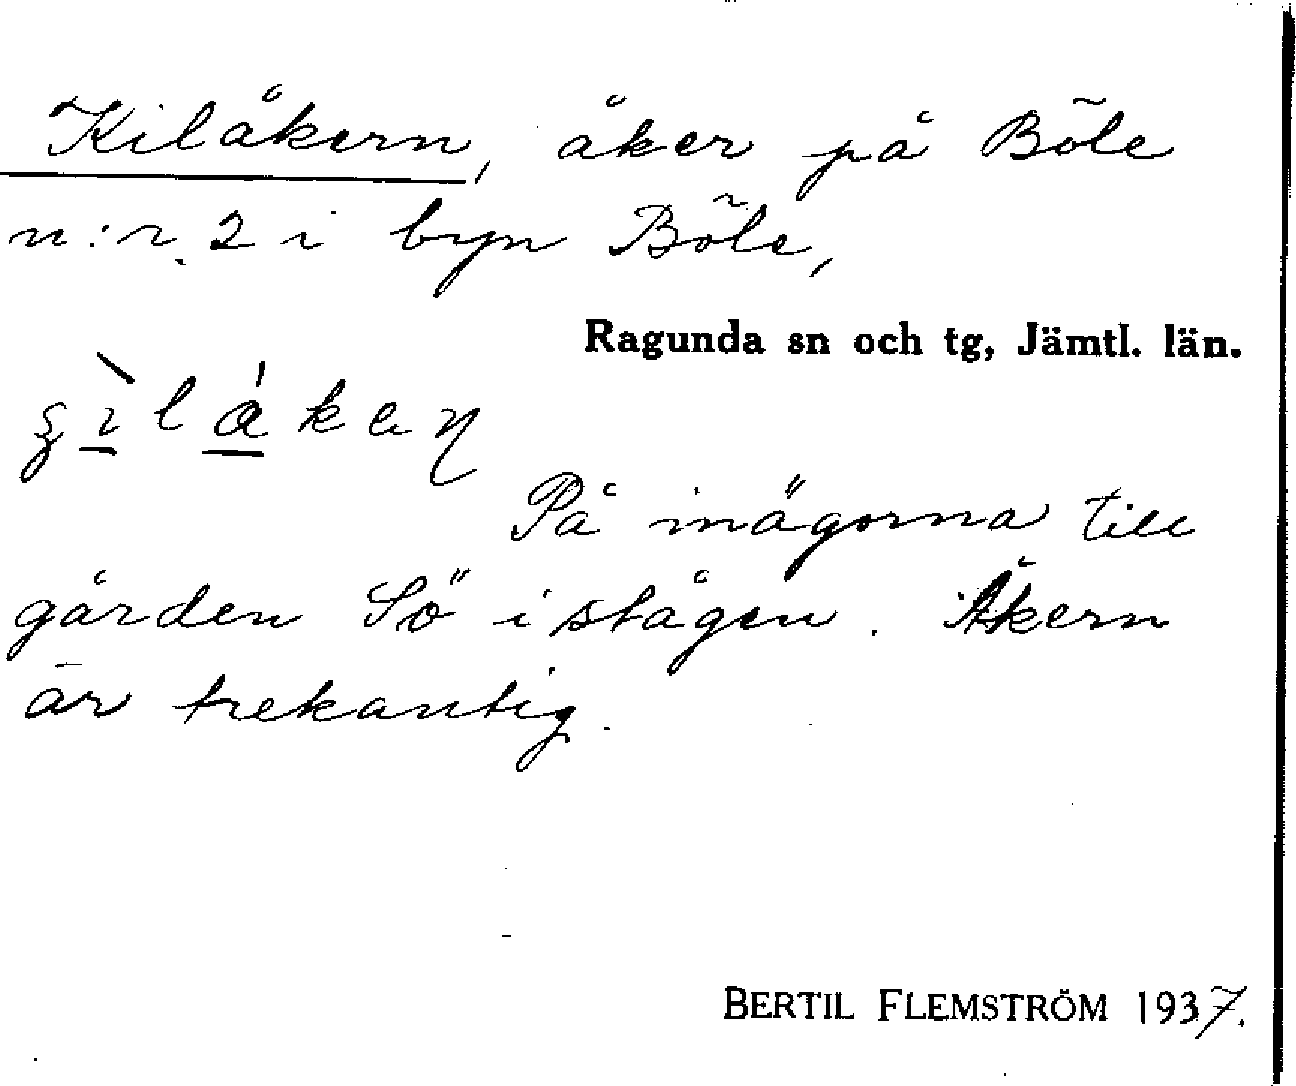 Kilåkern, åker på Böle
n:r. 2 i byn Böle,
Ragunda sn och tg, Jämtl. län.
På inägorna till
gården Sö i stågen. Åkern
är trekantig.
BERTIL FLEMSTRÖM 1937.